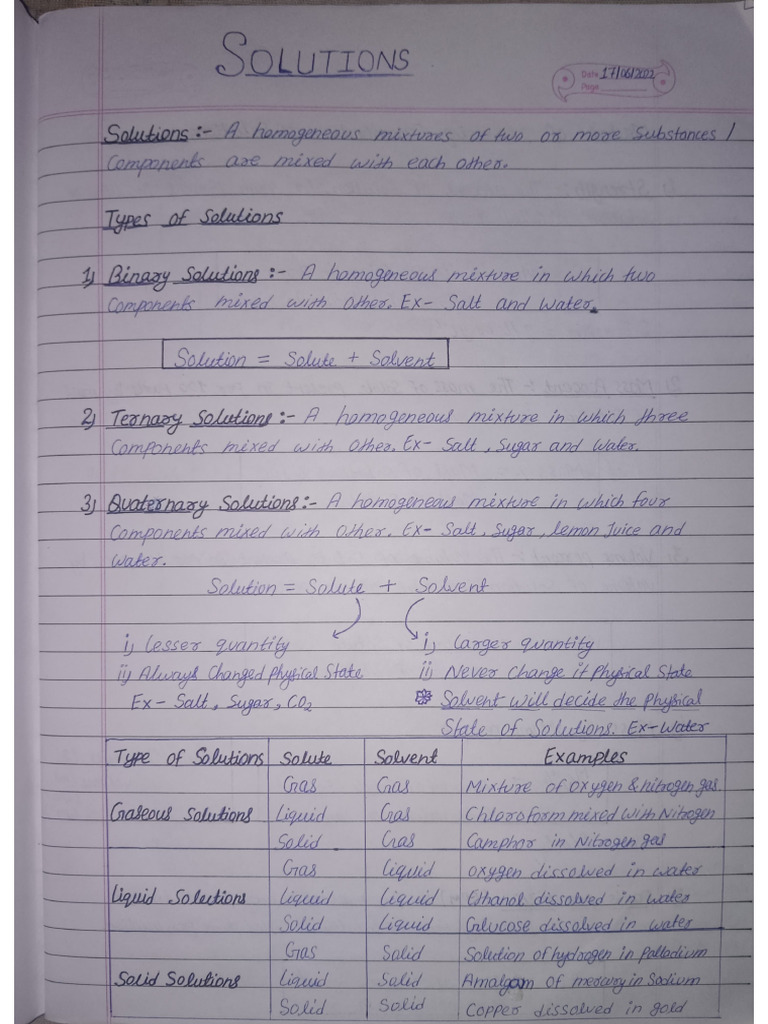 SOLUTIONS
Date 17/06/2022
Page
Solutions :- A homogeneous mixtures of two or more substances /
Components are mixed with each other.
Types of Solutions
1) Binary Solutions :- A homogeneous mixture in which two
Components mixed with other. Ex- Salt and water.
Solution = Solute + Solvent
2) Ternary Solutions :- A homogeneous mixture in which three
Components mixed with other. Ex- Salt, Sugar and water.
3) Quaternary Solutions :- A homogeneous mixture in which four
Components mixed with other. Ex- Salt, Sugar, lemon Juice and
water.
Solution = Solute + Solvent
i) lesser quantity i) larger quantity
ii) Always Changed physical State ii) Never Change it Physical State
Ex- Salt, Sugar, CO2 Solvent will decide the physical
State of Solutions. Ex- Water
Type of Solutions Solute Solvent Examples
Gas Gas Mixture of oxygen & nitrogen gas.
Gaseous Solutions Liquid Gas Chloroform mixed with Nitrogen
Solid Gas Camphar in Nitrogen gas
Gas Liquid oxygen dissolved in water
Liquid Solections Liquid Liquid Ethanol dissolved in water
Solid Liquid Glucose dissolved in water
Gas Solid Solution of hydrogen in Palladium
Solid Solutions Liquid Solid Amalgam of mercury in Sodium
Solid Solid Copper dissolved in gold